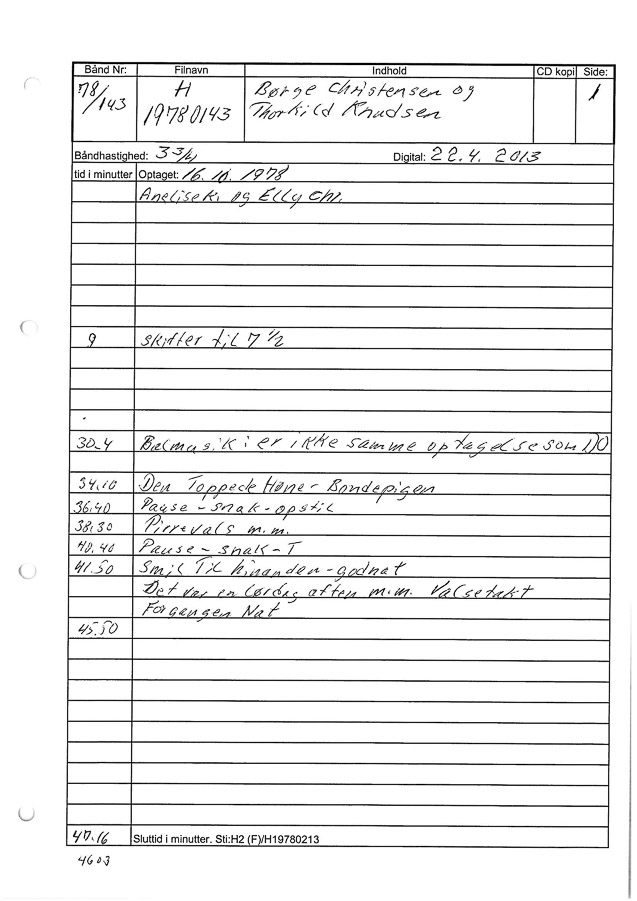 Bånd Nr: Filnavn Indhold CD kopi Side:
78/143 H 19780143 Børge Christensen og Thorkild Knudsen 1
Båndhastighed: 3 3/4 Digital: 22.4. 2013
tid i minutter Optaget: 16.10.1978
Anelise K. og Elly Chr.
9 skifter til 7 1/2
30-4 Balmusik i er ikke samme optagelse som DO
34.10 Den Toppede Høne - Bondepigen
36.40 Pause - snak - opstil
38.30 Pirrevals m.m.
40.40 Pause - snak - T
41.50 Smil Til hinanden - godnat
Det var en Lørdag aften m.m. Valsetakt
Forgangen Nat
45.50
47.16 Sluttid i minutter. Sti:H2 (F)/H19780213
4603